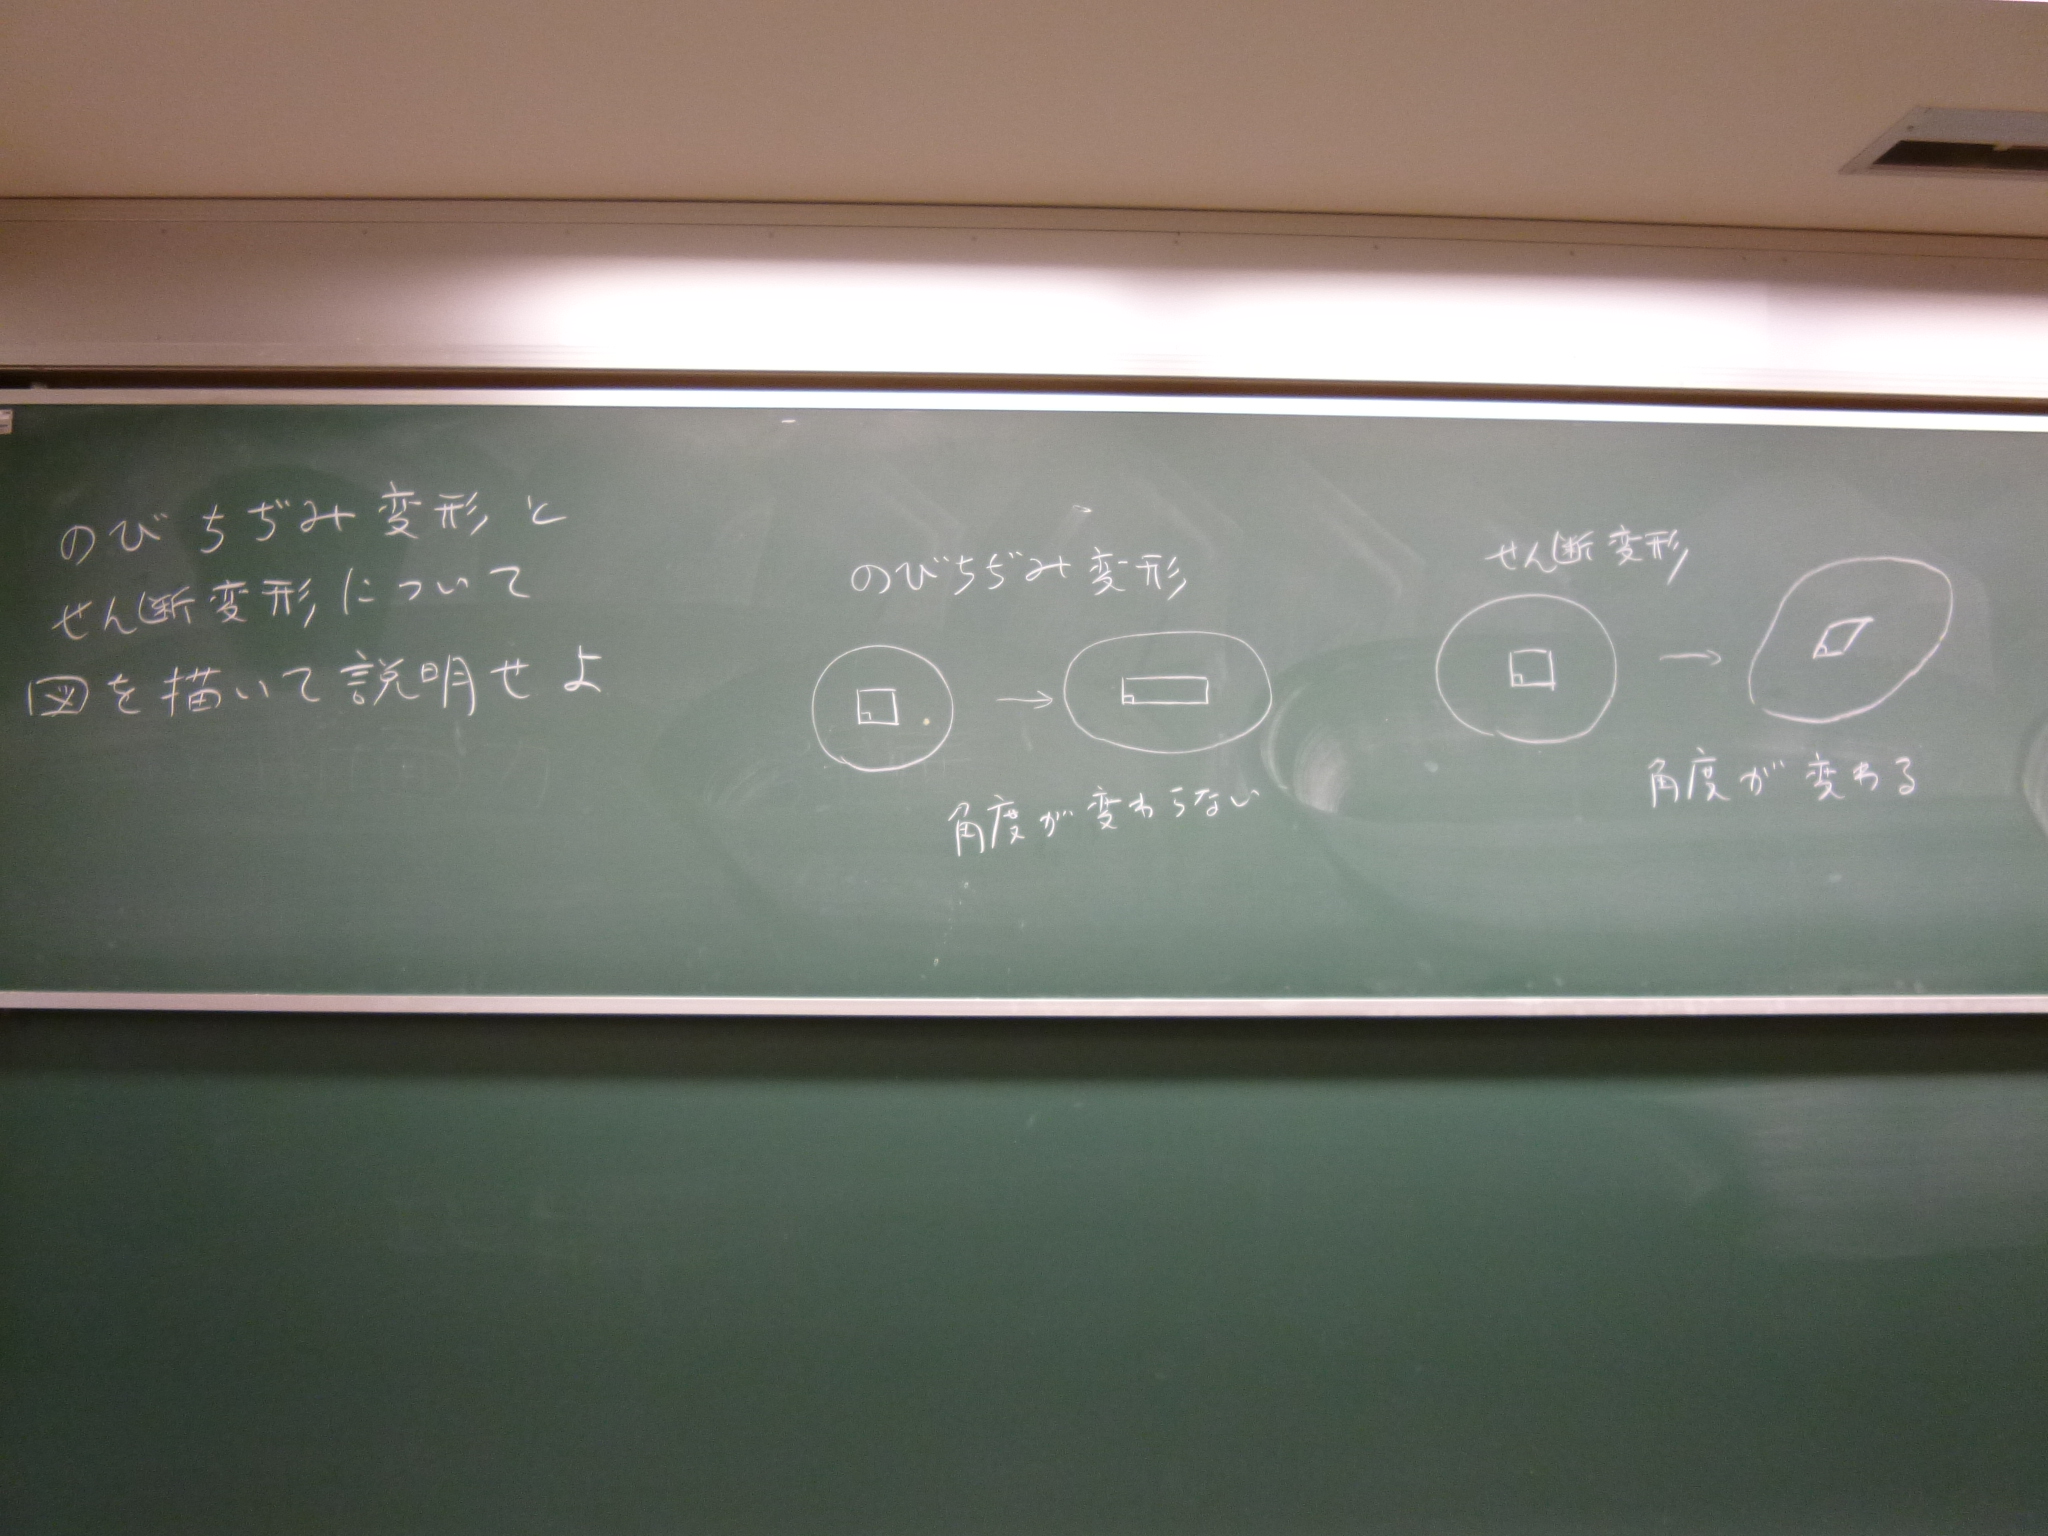 のびちぢみ変形と
せん断変形について
図を描いて説明せよ
のびちぢみ変形
角度が変わらない
せん断変形
角度が変わる